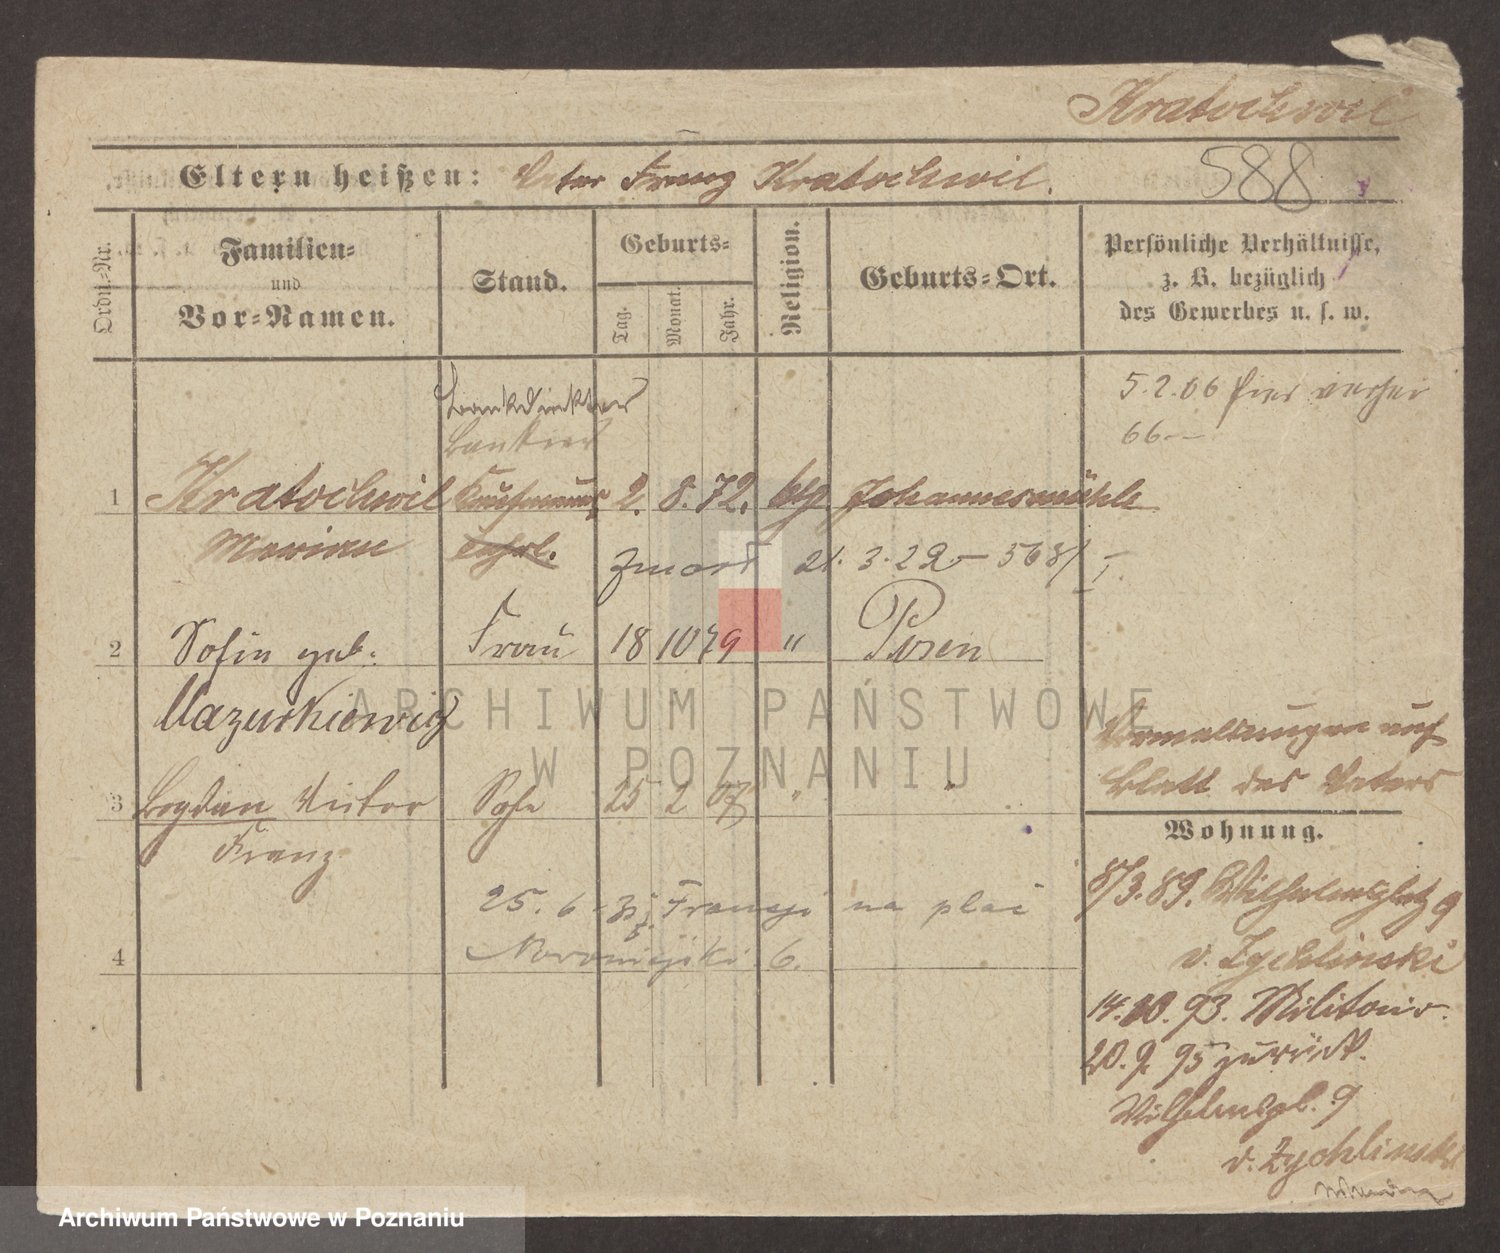 Kratochwil
588
Eltern heißen: Vater Franz Kratochwil.
Ordn.=Nr.
Familien=
und
Vor=Namen.
Stand.
Geburts=
Tag.
Monat.
Jahr.
Religion.
Geburts=Ort.
Persönliche Verhältnisse,
z. B. bezüglich
des Gewerbes u. s. w.
Bankdirektor
Bankier
5.2.06 hier
66
1 Kratochwil Kaufmanns 2. 8. 72. Johannesmühle
Marian Lehrl.
zmarł 21. 3. 29 568/
2 Sofia geb. Frau 18 10 79 " Posen
Mazurkiewicz
3 Bogdan Victor Sohn 25 2 07 " "
Franz
25. 6 Francji na plac
Nowomiejski 6.
4
Vermerkungen auf
Blatt des Vaters
Wohnung.
8/3.89. Wilhelmsplatz 9
v. Zychlinski
14.10.93. Militair.
20.9.95 zurück.
Wilhelmspl. 9
v. Zychlinski
ARCHIWUM PAŃSTWOWE
W POZNANIU
Archiwum Państwowe w Poznaniu